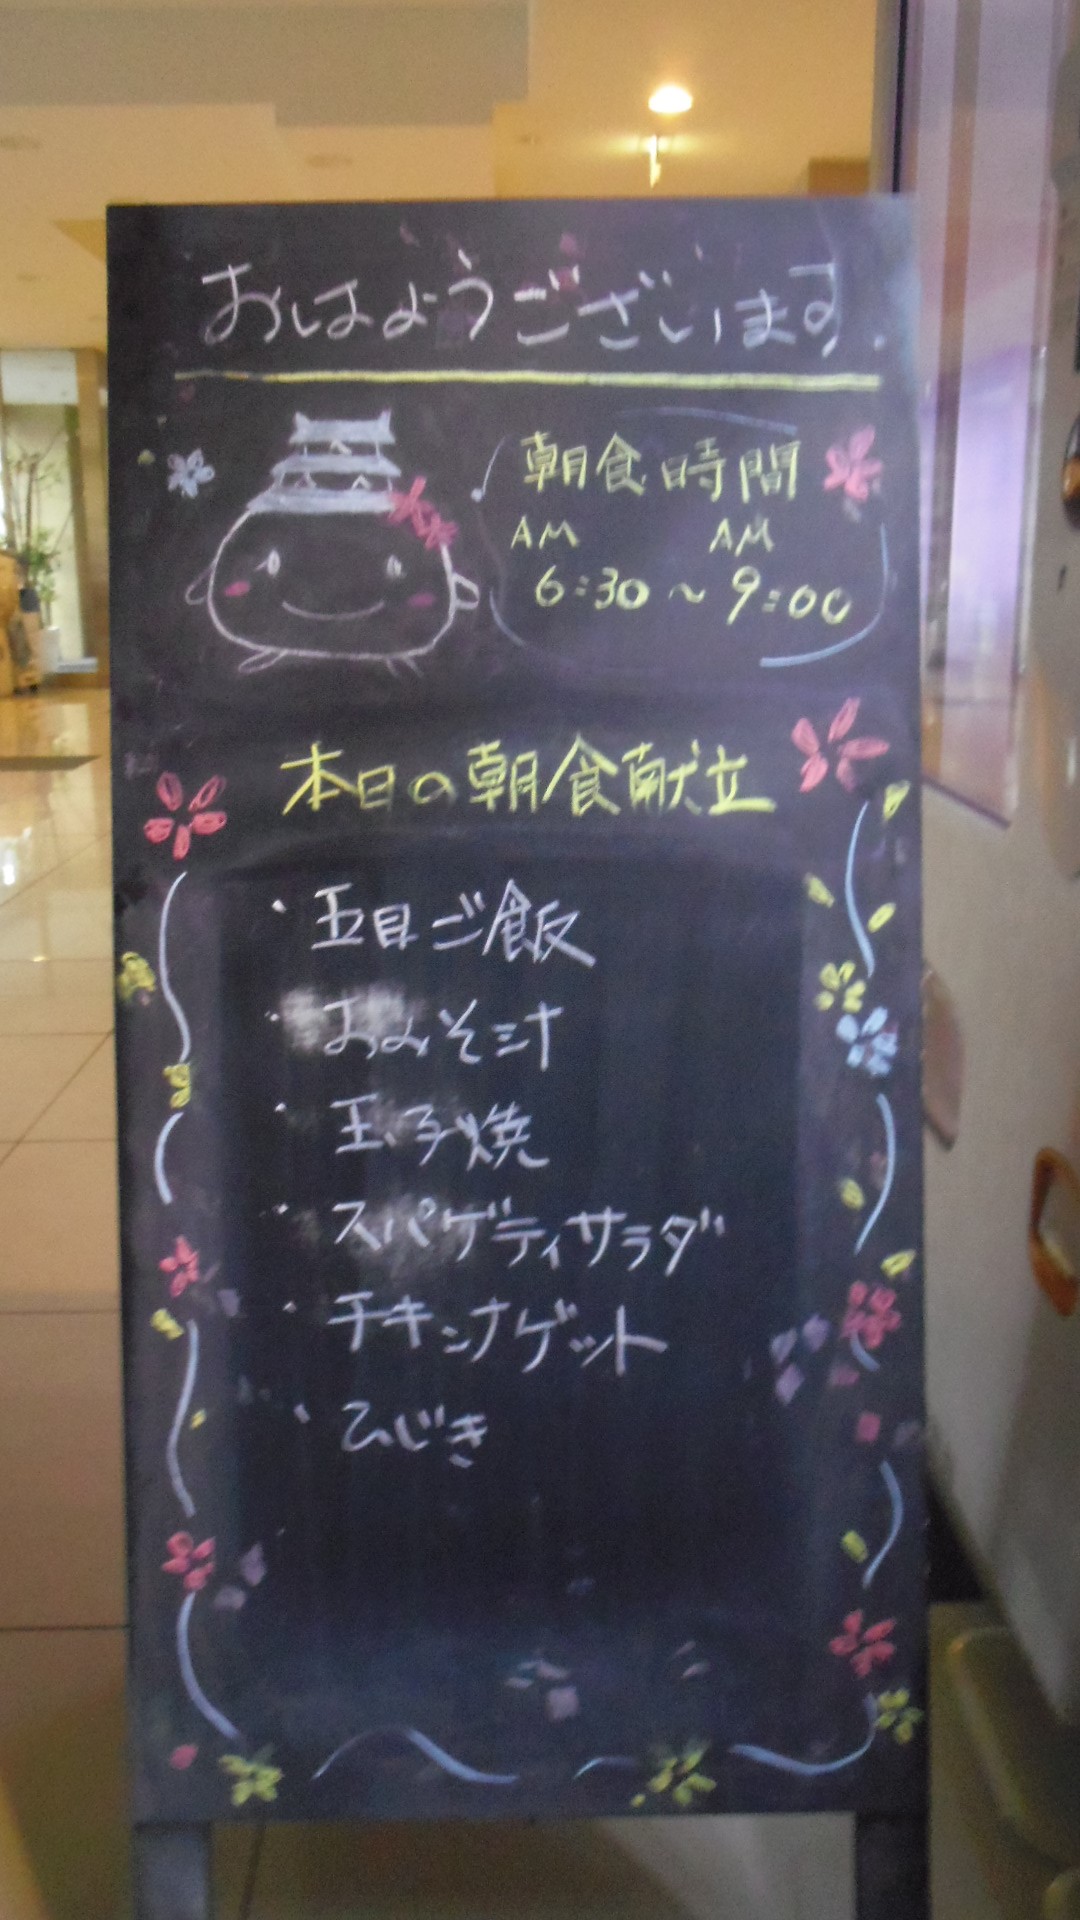 おはようございます.
朝食時間
AM AM
6:30～9:00
本日の朝食献立
・五目ご飯
・おみそ汁
・玉子焼
・スパゲティサラダ
・チキンナゲット
・ひじき